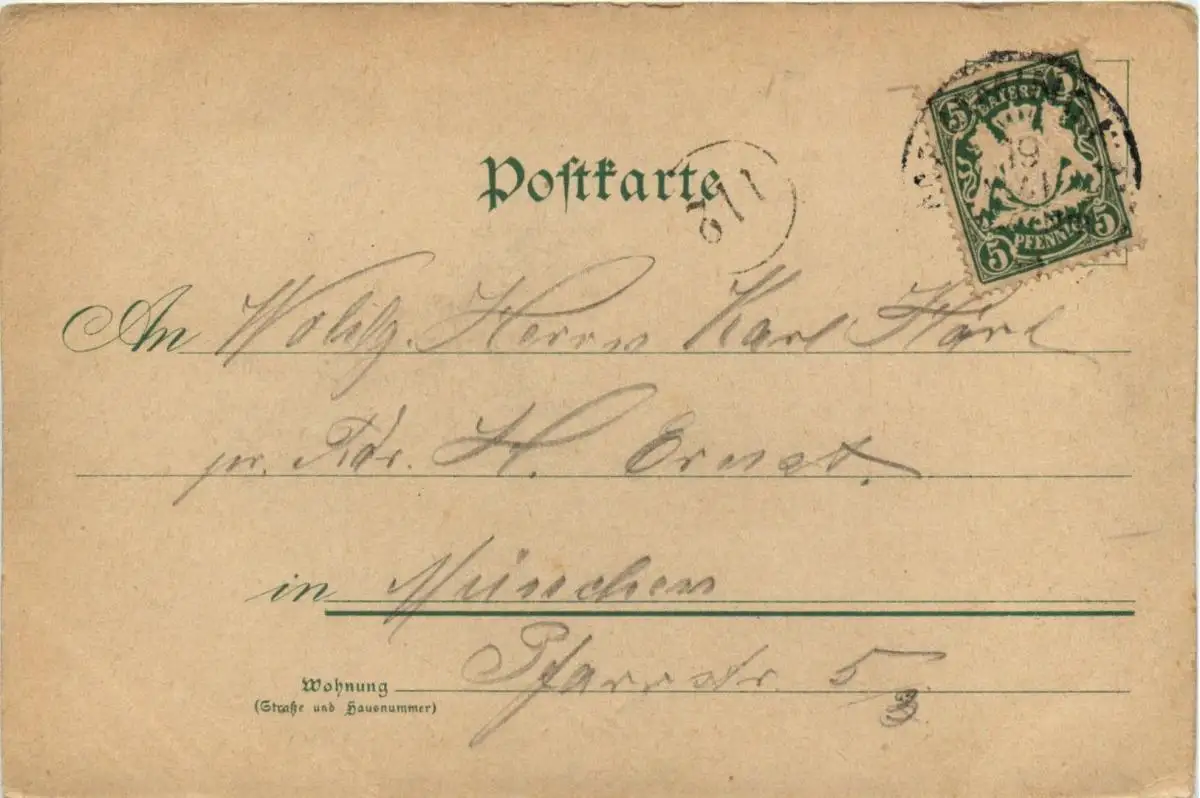 5 5
BAYERN
5 PFENNIG 5
19
Postkarte
An Herrn Karl
pr. Adr. H. Ernst.
in München
Pfarrstr. 5/3
Wohnung
(Straße und Hausnummer)